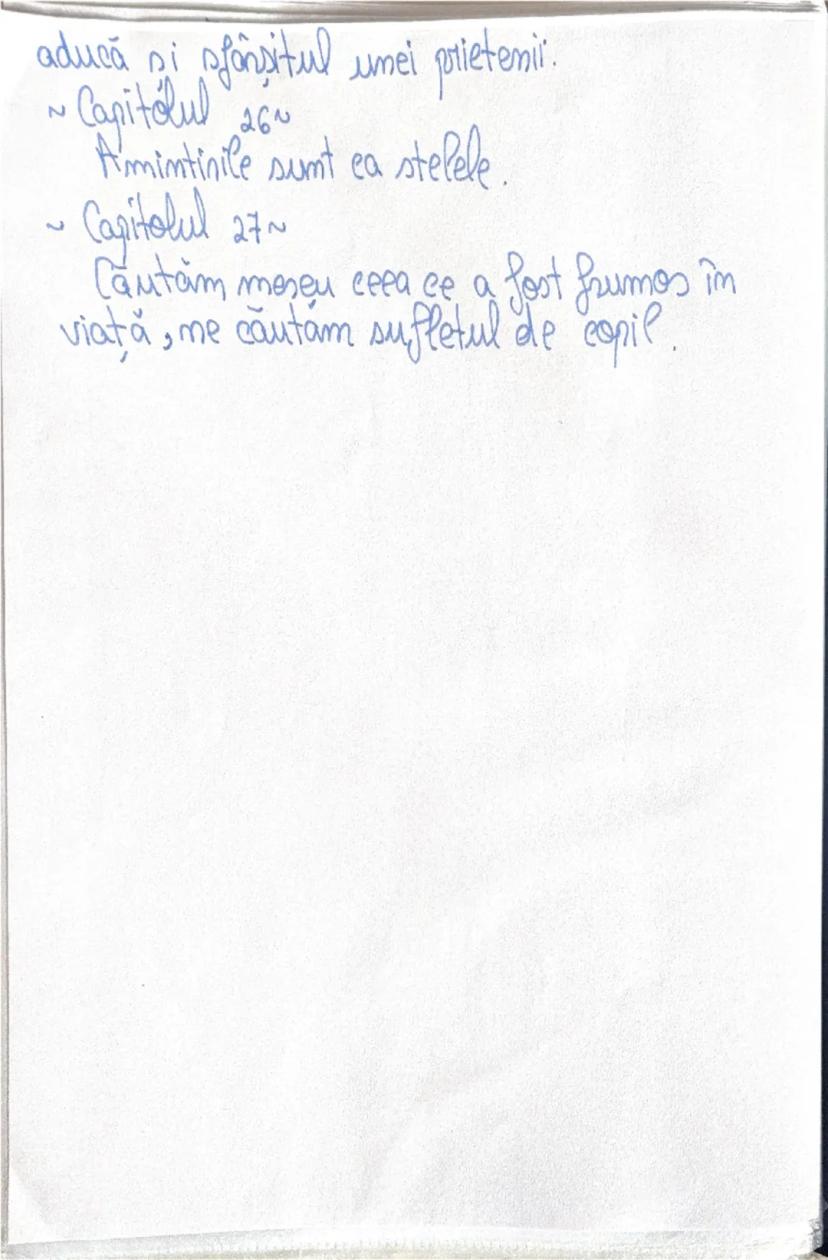 aducă si sfârșitul unei prietenii.
~ Capitolul 26~
Amintinile sunt ca stelele.
~ Capitolul 27~
Căutăm mereu ceea ce a fost frumos în
viață, ne căutăm sufletul de copil.